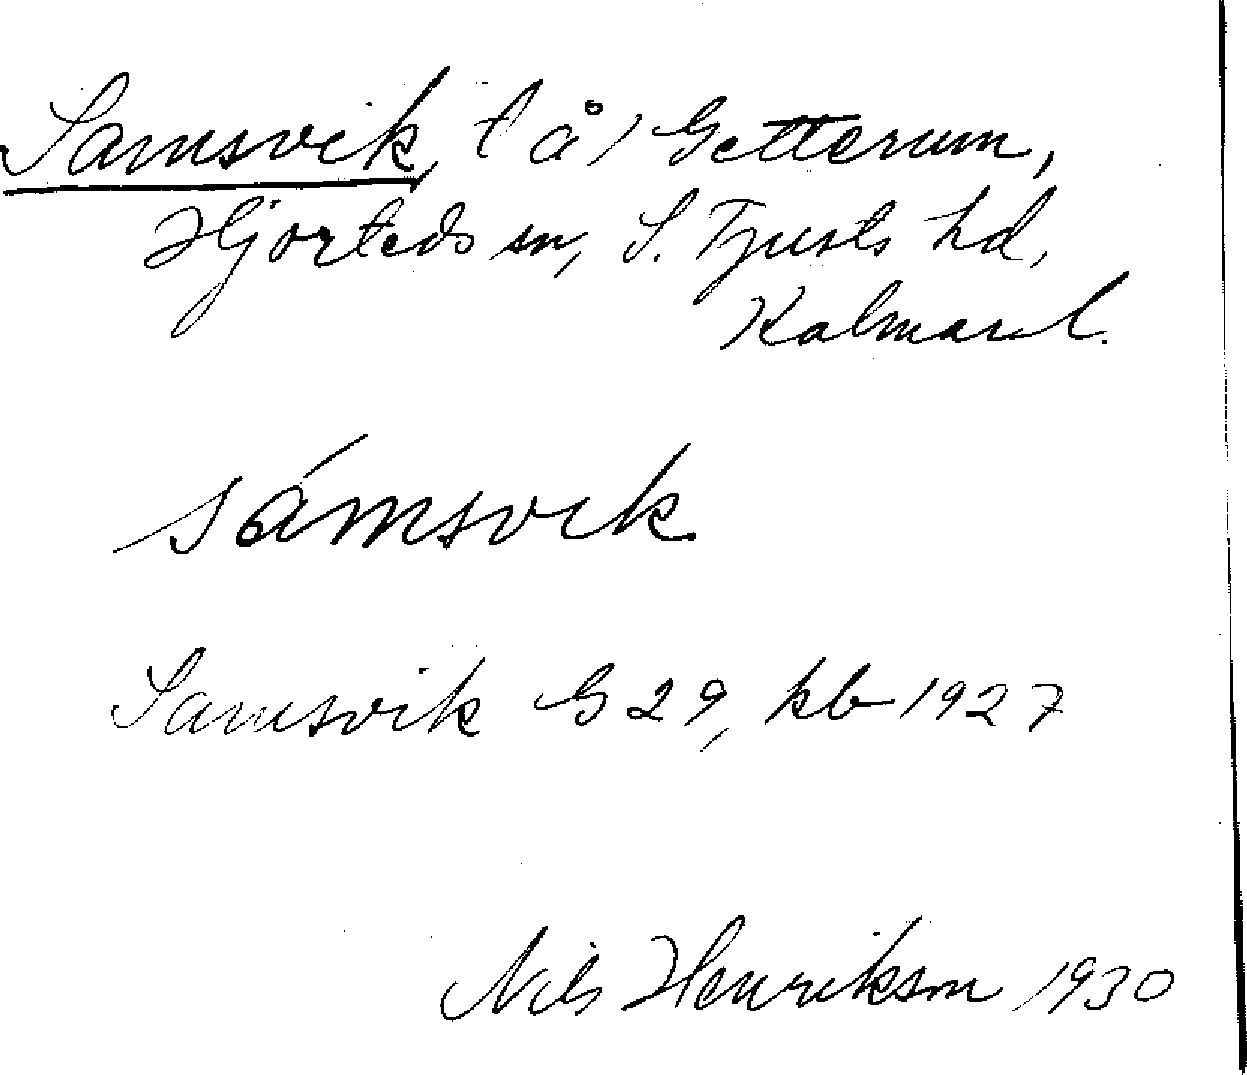 Samsvik, t å) Getterum,
Hjorteds sn, S. Tjusts hd,
Kalmar l.
sámsvik
Samsvik G 29, kb 1927
Nils Henrikson 1930